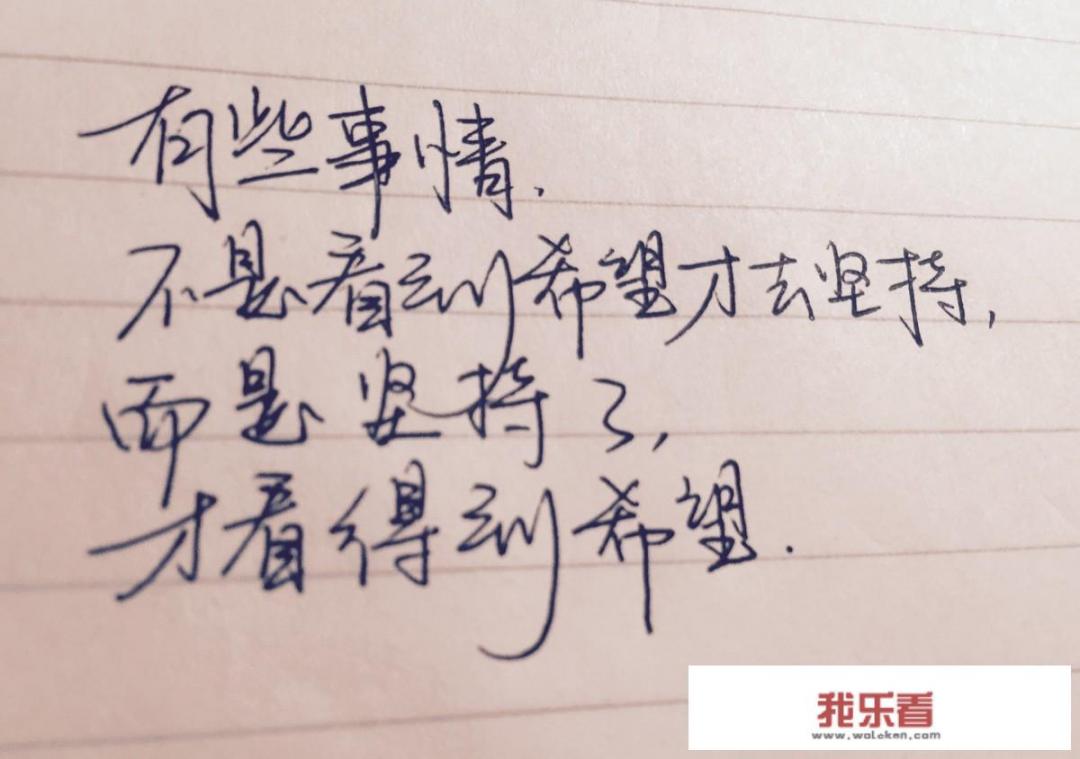 有些事情.
不是看到希望才去坚持,
而是坚持了,
才看得到希望.
我乐看
www.woleken.com